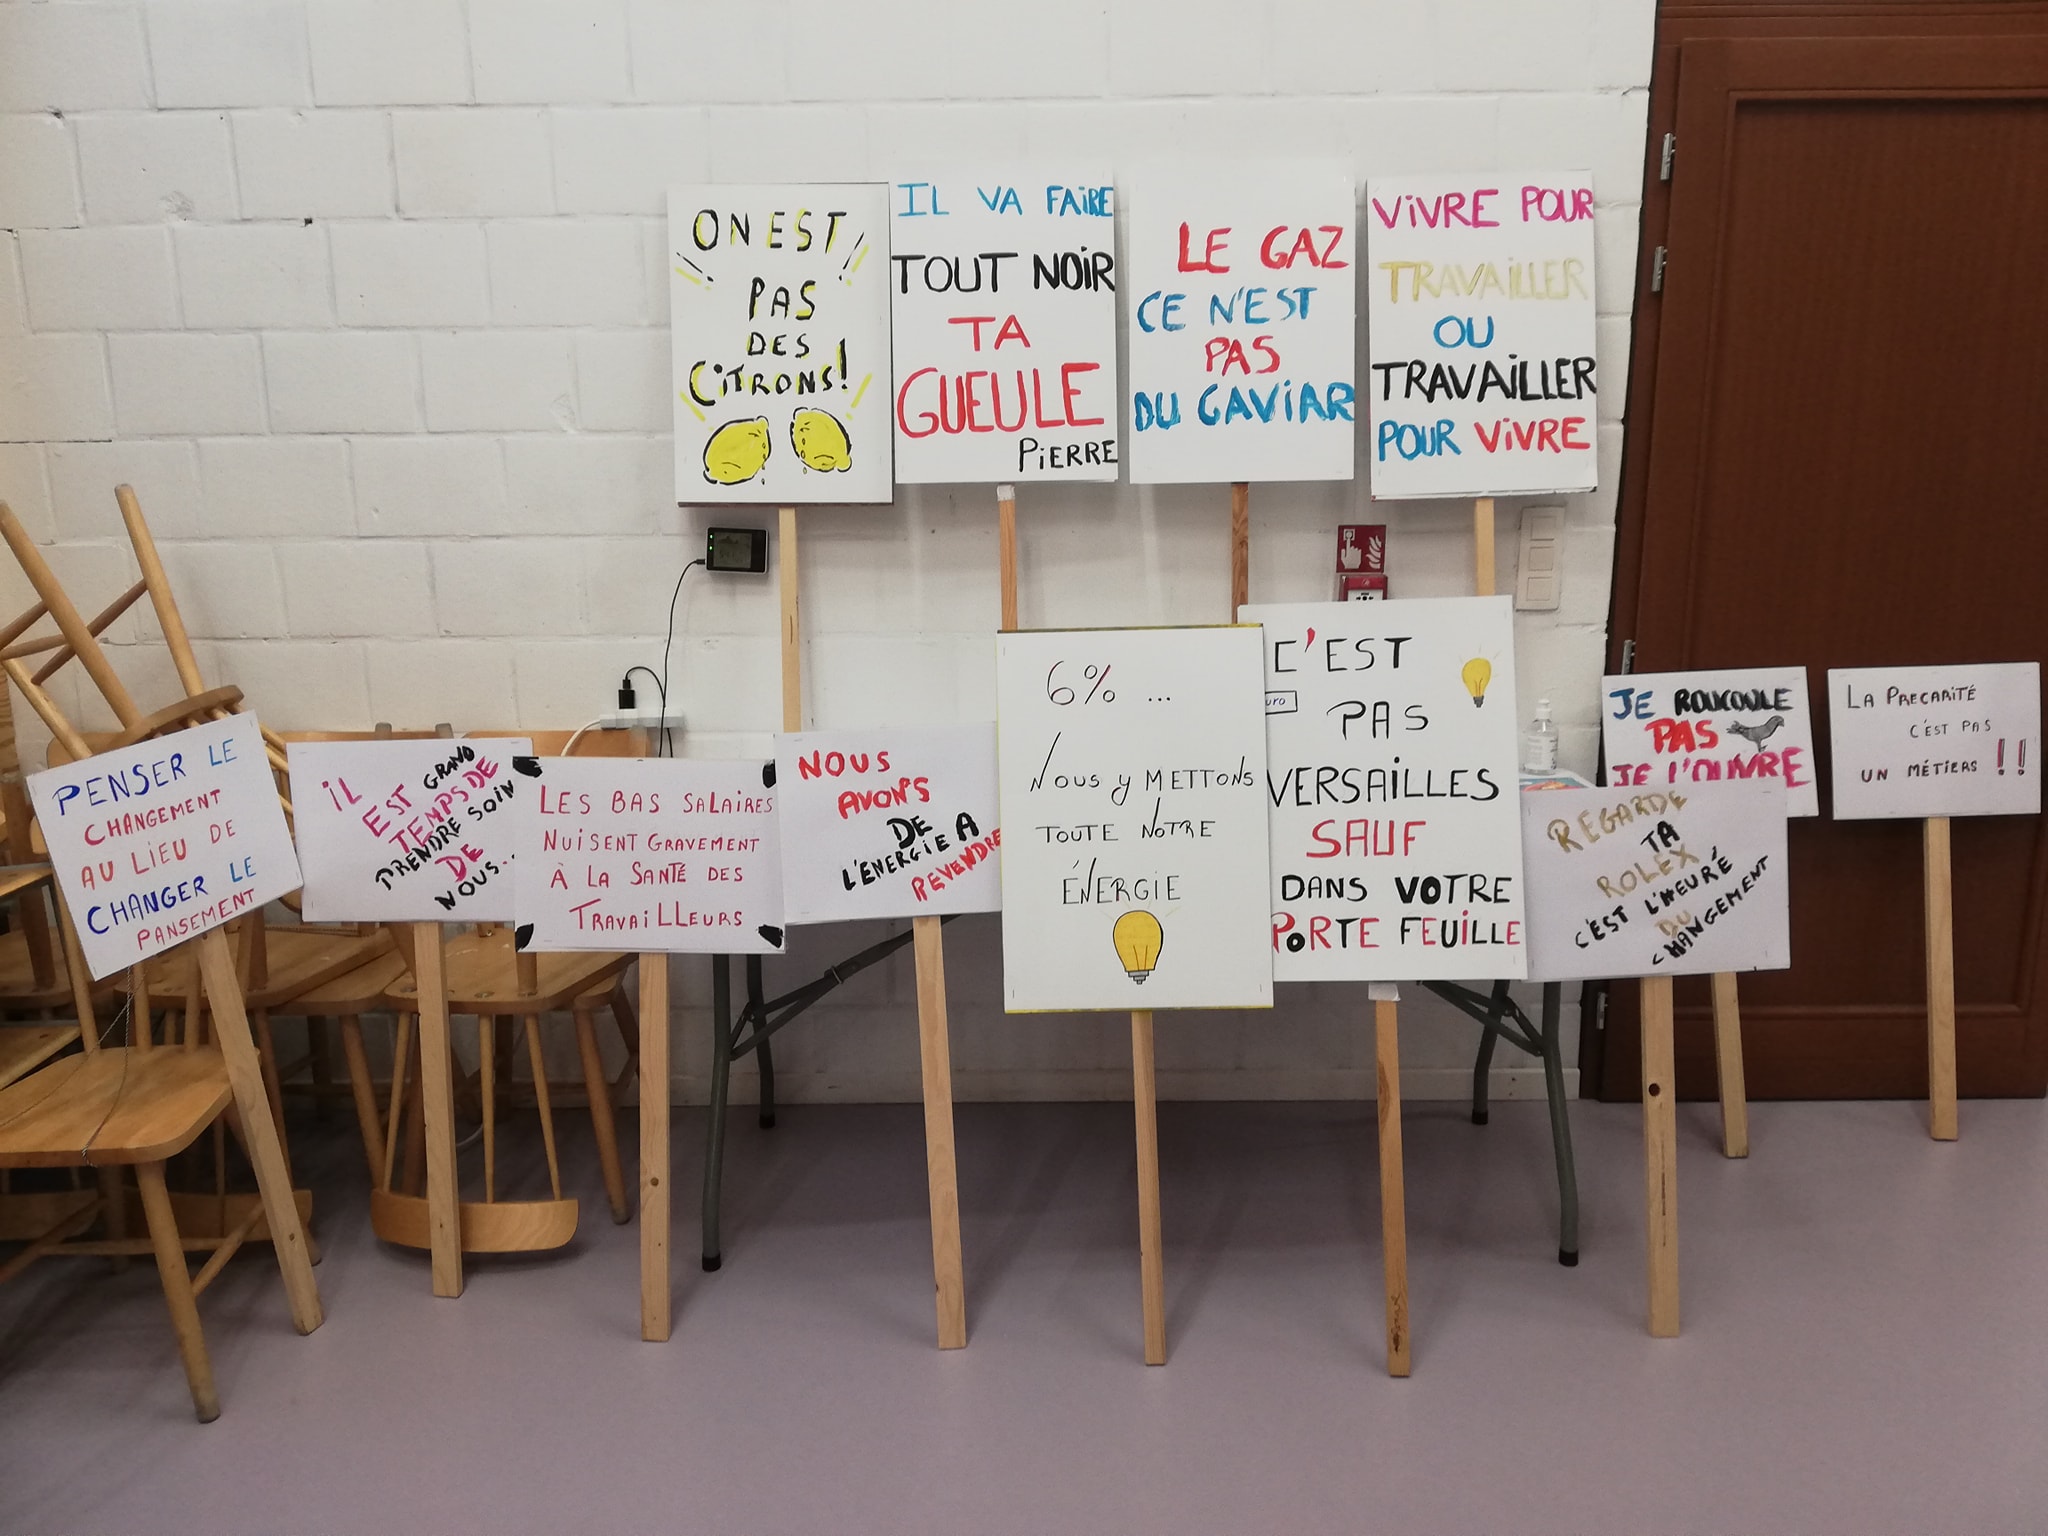 ON EST
PAS
DES
CITRONS!
IL VA FAIRE
TOUT NOIR
TA
GUEULE
PIERRE
LE GAZ
CE N'EST
PAS
DU GAVIAR
VIVRE POUR
TRAVAILLER
OU
TRAVAILLER
POUR VIVRE
PENSER LE
CHANGEMENT
AU LIEU DE
CHANGER LE
PANSEMENT
IL
EST GRAND
TEMPS DE
PRENDRE SOIN
DE
NOUS...
LES BAS SALAIRES
NUISENT GRAVEMENT
À LA SANTÉ DES
TRAVAILLEURS
NOUS
AVONS
DE
L'ENERGIE A
REVENDRE
6% ...
NOUS Y METTONS
TOUTE NOTRE
ÉNERGIE
C'EST
uro
PAS
VERSAILLES
SAUF
DANS VOTRE
PORTE FEUILLE
JE ROUCOULE
PAS
JE L'OUVRE
REGARDE
TA
ROLEX
C'EST L'HEURE
DU
CHANGEMENT
LA PRECARITÉ
C'EST PAS
UN MÉTIERS !!